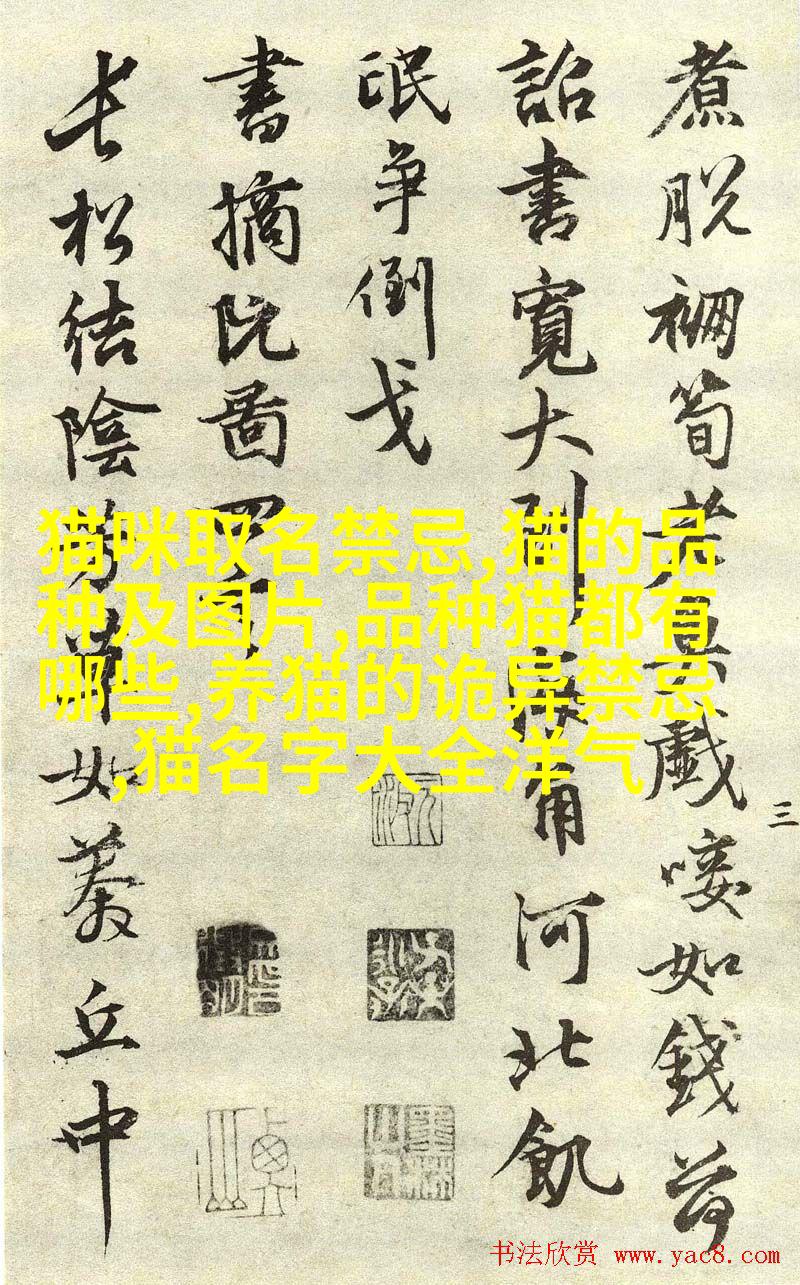 煮脱筍戲唼如錢荷
詔書寬大到海角河北飢
氓争倒戈
書摘阮圖四
長松結陰如慕丘中
三
猫咪取名禁忌,猫的品
种及图片,品种猫都有
哪些,养猫的诡异禁忌
,猫名字大全洋气
书法欣赏 www.yac8.com